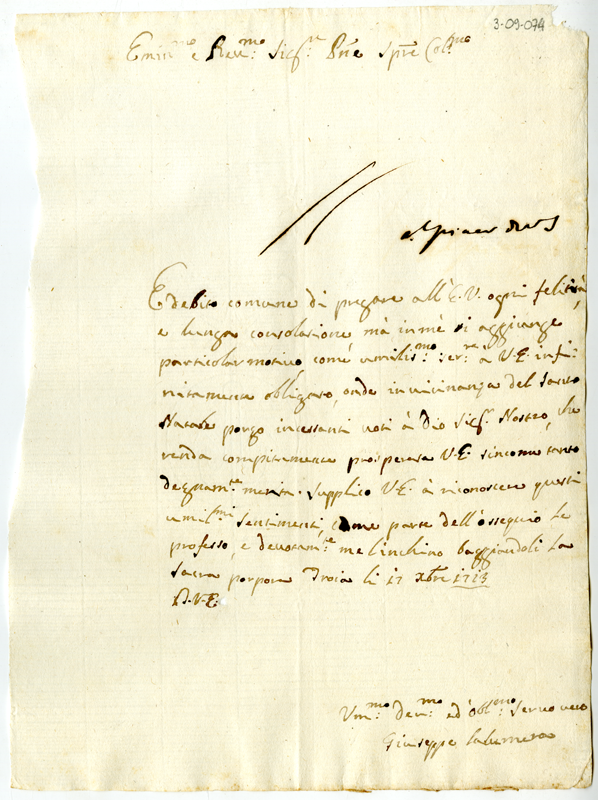 3-09-074
Emin.mo e Rev.mo Sig.re Pne Spre Col.mo
È debito comune di pregare all'E.V. ogni felicità,
e lunga consolazione mà in mè si aggiunge
particolar motivo com'è umilis.mo ser.re à V.E. infi-
nitamente obligato, onde in vicinanza del Santo
Natale porgo incessanti voti à Dio Sig.r Nostro, che
renda compitamente prosperata V.E. sincome tanto
degnam.te merita. Supplico V.E. à riconoscere questi
umil.mi sentimenti, come parte dell'ossequio le
professo, e devotam.te me l'inchino baggiandoli la
Sacra porpora Troia li 17 Xbre 1713
D.V.E.
Um.mo Dev.mo ed Obl.mo Servo vero
Giuseppe